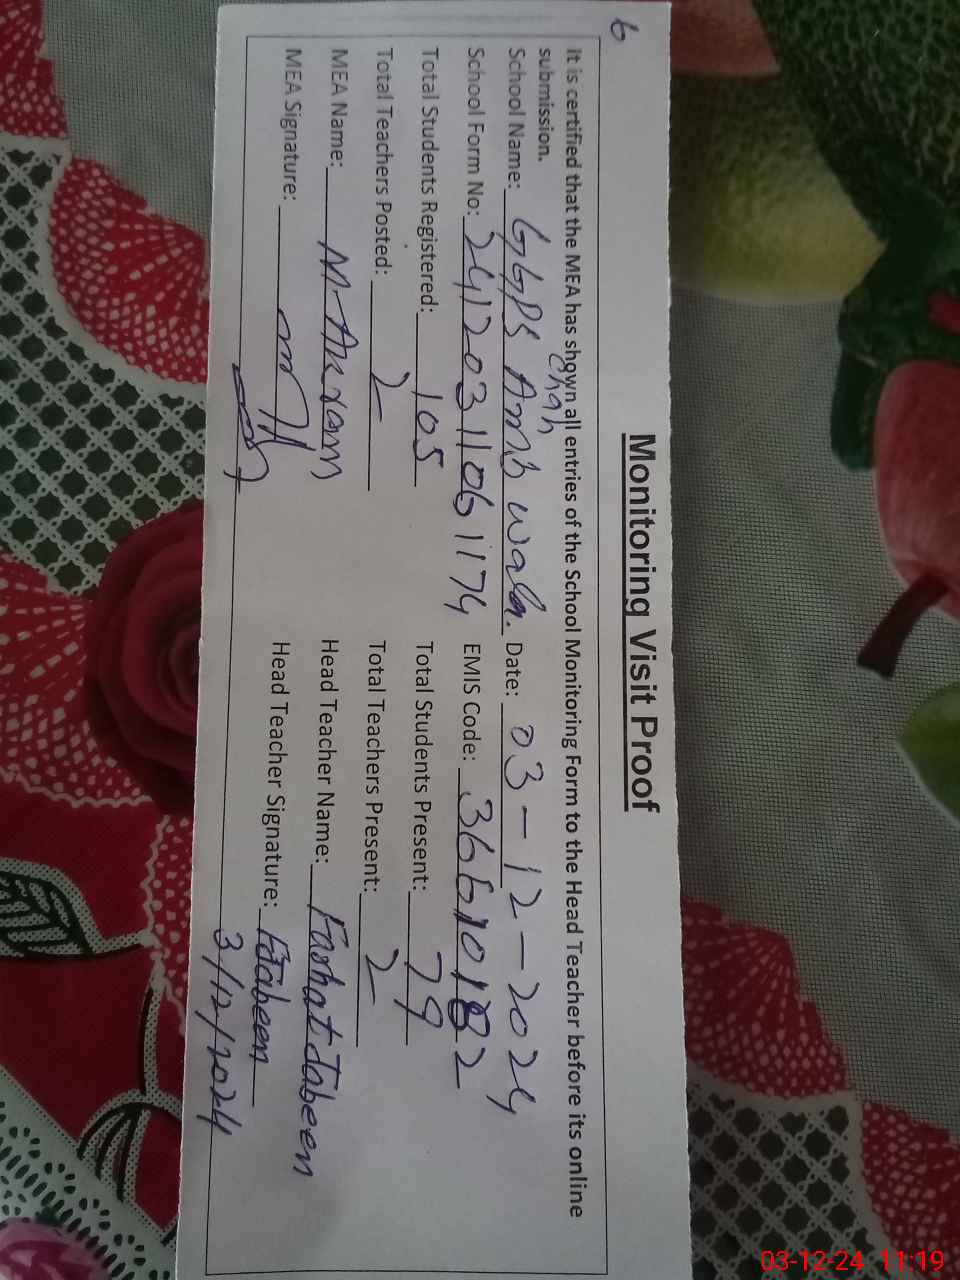 6
Monitoring Visit Proof
It is certified that the MEA has shown all entries of the School Monitoring Form to the Head Teacher before its online
submission.
chah
School Name: GGPS Amb wala. Date: 03-12-2024
School Form No: 2412031106 1174 EMIS Code: 36610182
Total Students Registered: 105 Total Students Present: 79
Total Teachers Posted: 2 Total Teachers Present: 2
MEA Name: M-Akram Head Teacher Name: Farhat Jabeen
MEA Signature: Head Teacher Signature: FJabeen
3/12/2024
03-12-24 11:19